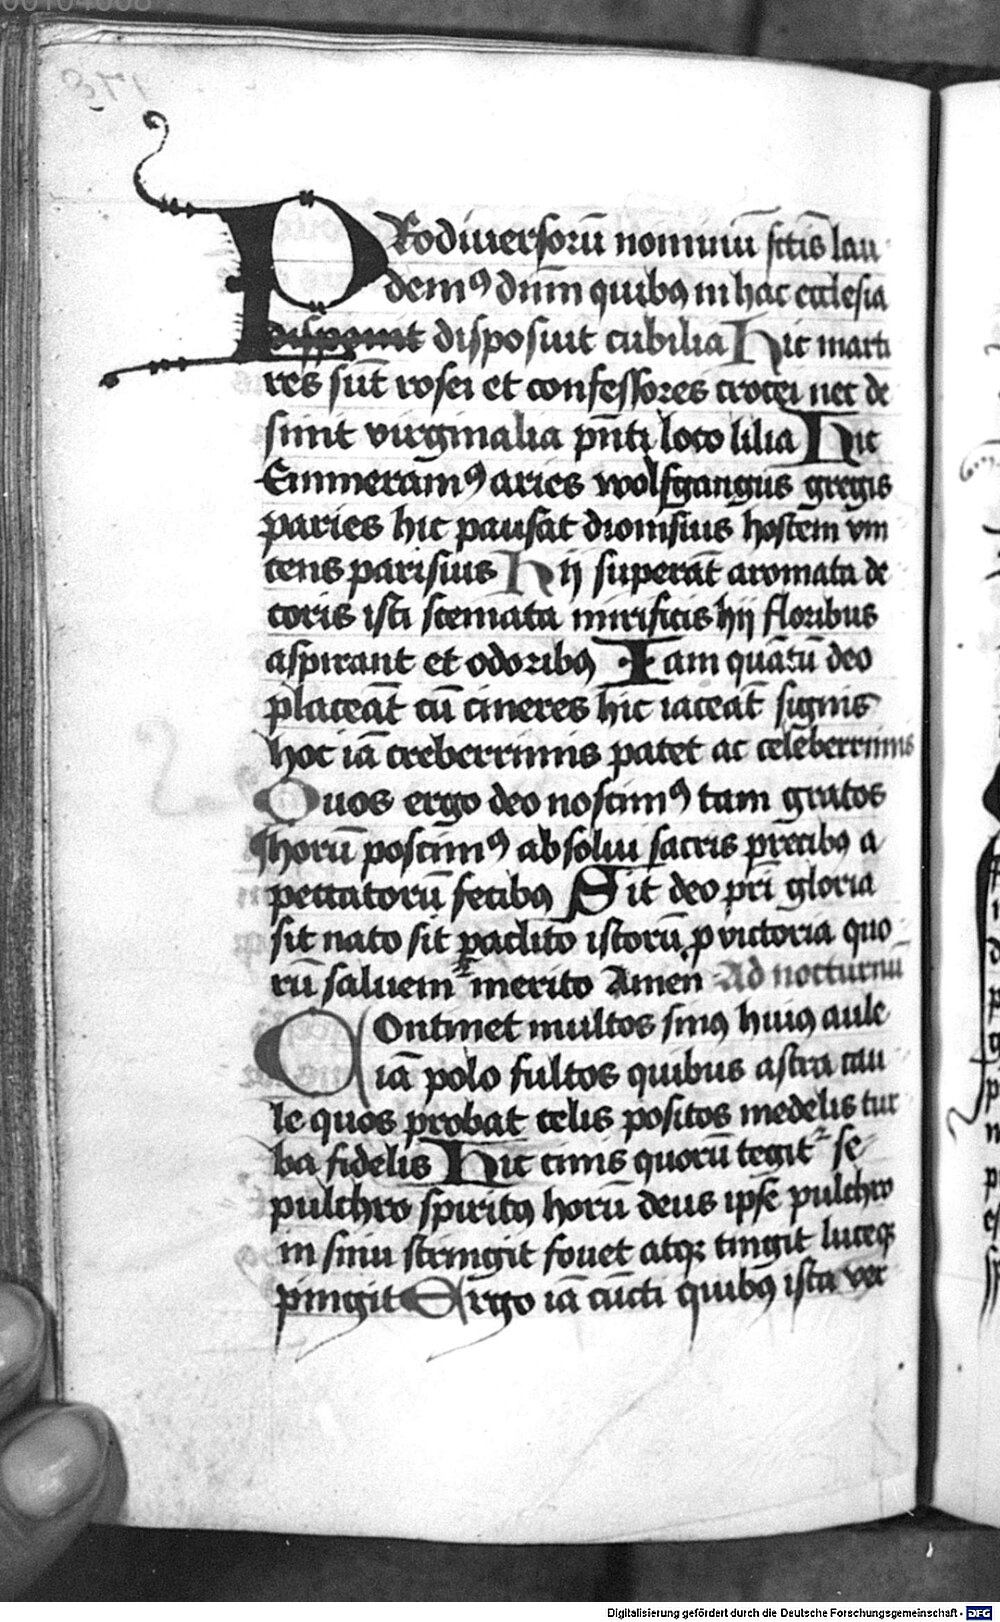 00104008
178
PRo diuersorū nominū sctīs lau
demꝰ dnm̄ quibꝫ in hac ecclesia
disponit disposuit cubilia Hic marti
res sūt rosei et confessores crocei nec de
sunt virginalia pn̄ti loco lilia Hic
Emmeramꝰ aries wolfgangus gregis
paries hic pausat dionisius hostem vin
cens parisius Hij superāt aromata de
coris isti stemata mirificis hij floribus
aspirant et odoribꝫ Iam quātū deo
placeāt cū cineres hic iaceāt signis
hoc iā creberrimis patet ac celeberrimis
Quos ergo deo noscimꝰ tam gratos
horū poscimꝰ absolui sacris precibꝫ a
peccatorū fecibꝫ Sit deo pr̄i gloria
sit nato sit paclito istorū p victoria quo
rū saluemr merito Amen Ad nocturnū
COntinet multos sinꝰ huiꝰ aule
iā polo fultos quibus astra cau
le quos probat celis positos medelis tur
ba fidelis Hic cinis quorū tegitr se
pulchro spiritꝰ horū deus ipse pulchro
in sinu stringit fouet atqꝫ tingit luceqꝫ
pingit Ergo iā cūcti quibꝫ ista ver
Digitalisierung gefördert durch die Deutsche Forschungsgemeinschaft - DFG